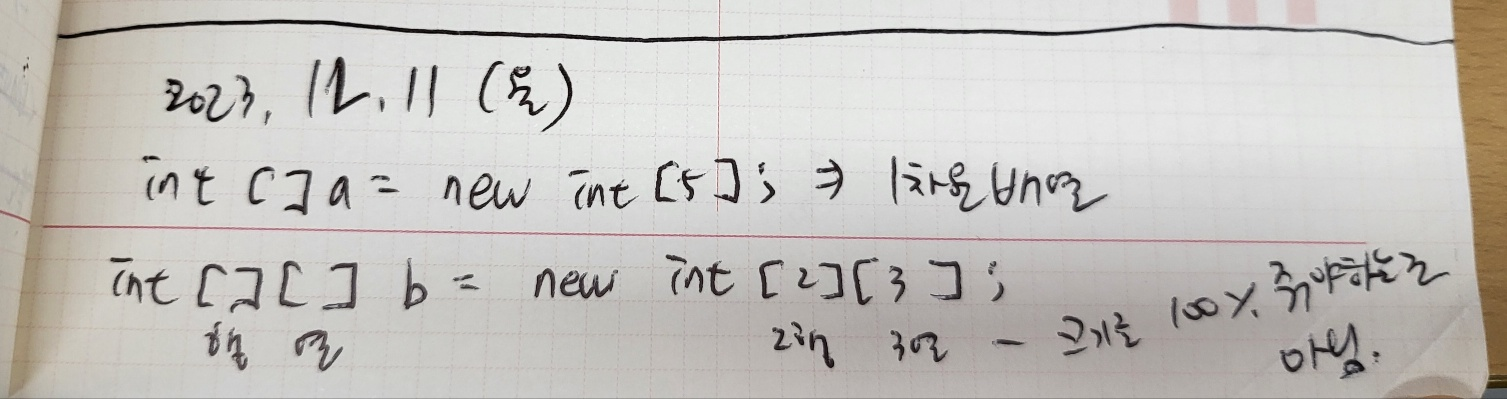 2023. 12. 11 (월)
int []a = new int [5]; ⇒ 1차원 배열
int [][] b = new int [2][3];
행 열 2행 3열 - 크기를 100% 줘야하는건
아님.